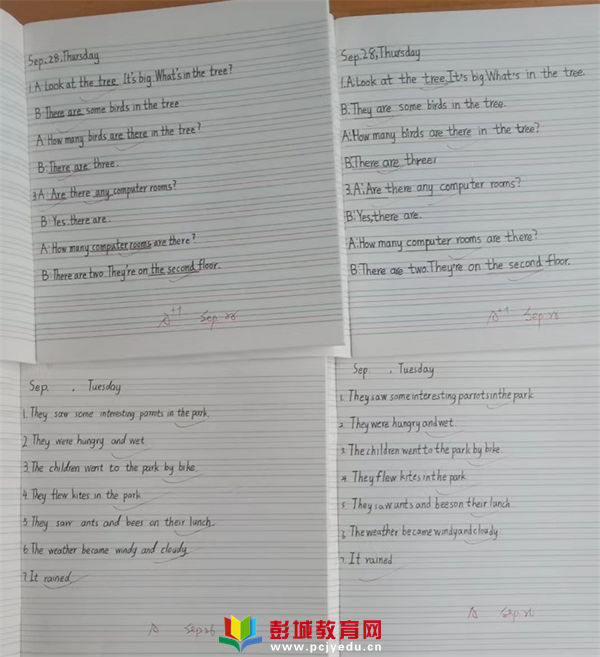 Sep.28.Thursday
1.A Look at the tree. It's big. What's in the tree?
B: There are some birds in the tree
A: How many birds are there in the tree?
B: There are three.
3.A: Are there any computer rooms?
B: Yes. there are.
A: How many computer rooms are there?
B: There are two. They're on the second floor.
A+1 Sep 28
Sep.28,Thursday
1.A:Look at the tree.It's big.What's in the tree.
B:They are some birds in the tree.
A:How many birds are there in the tree?
B:There are three.
3.A:Are there any computer rooms?
B:Yes,there are.
A:How many computer rooms are there?
B:There are two.They're on the second floor.
A+1 Sep 28
Sep. , Tuesday
1. They saw some interesting parrots in the park.
2 They were hungry and wet
3.The children went to the park by bike.
4. They flew kites in the park
5 They saw ants and bees on their lunch.
6.The weather became windy and cloudy
7.It rained
A Sep 26
Sep. , Tuesday
1. They saw some interesting parrots in the park
2. They were hungry and wet.
3. The children went to the park by bike.
4. They flew kites in the park
5. They saw ants and bees on their lunch
6. The weather became windy and cloudy.
7. It rained
A Sep 26
彭城教育网
www.pcjyedu.cn